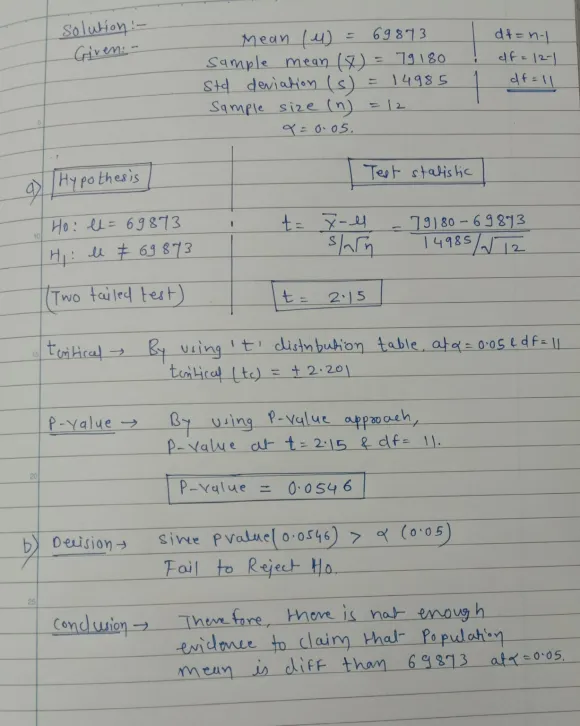 Solution:-
Given:-
Mean (μ) = 69873
Sample mean (x̄) = 79180
Std deviation (s) = 14985
Sample size (n) = 12
α = 0.05.
df = n-1
df = 12-1
df = 11
a) Hypothesis
H0: μ = 69873
H1: μ ≠ 69873
(Two tailed test)
Test statistic
t = x̄-μ / s/√n = 79180-69873 / 14985/√12
t = 2.15
tcritical → By using 't' distribution table, at α = 0.05 & df = 11
tcritical (tc) = ± 2.201
P-value → By using P-value approach,
P-value at t = 2.15 & df = 11.
P-value = 0.0546
b) Decision → since pvalue(0.0546) > α (0.05)
Fail to Reject H0.
Conclusion → Therefore, there is not enough
evidence to claim that Population
mean is diff than 69873 at α = 0.05.